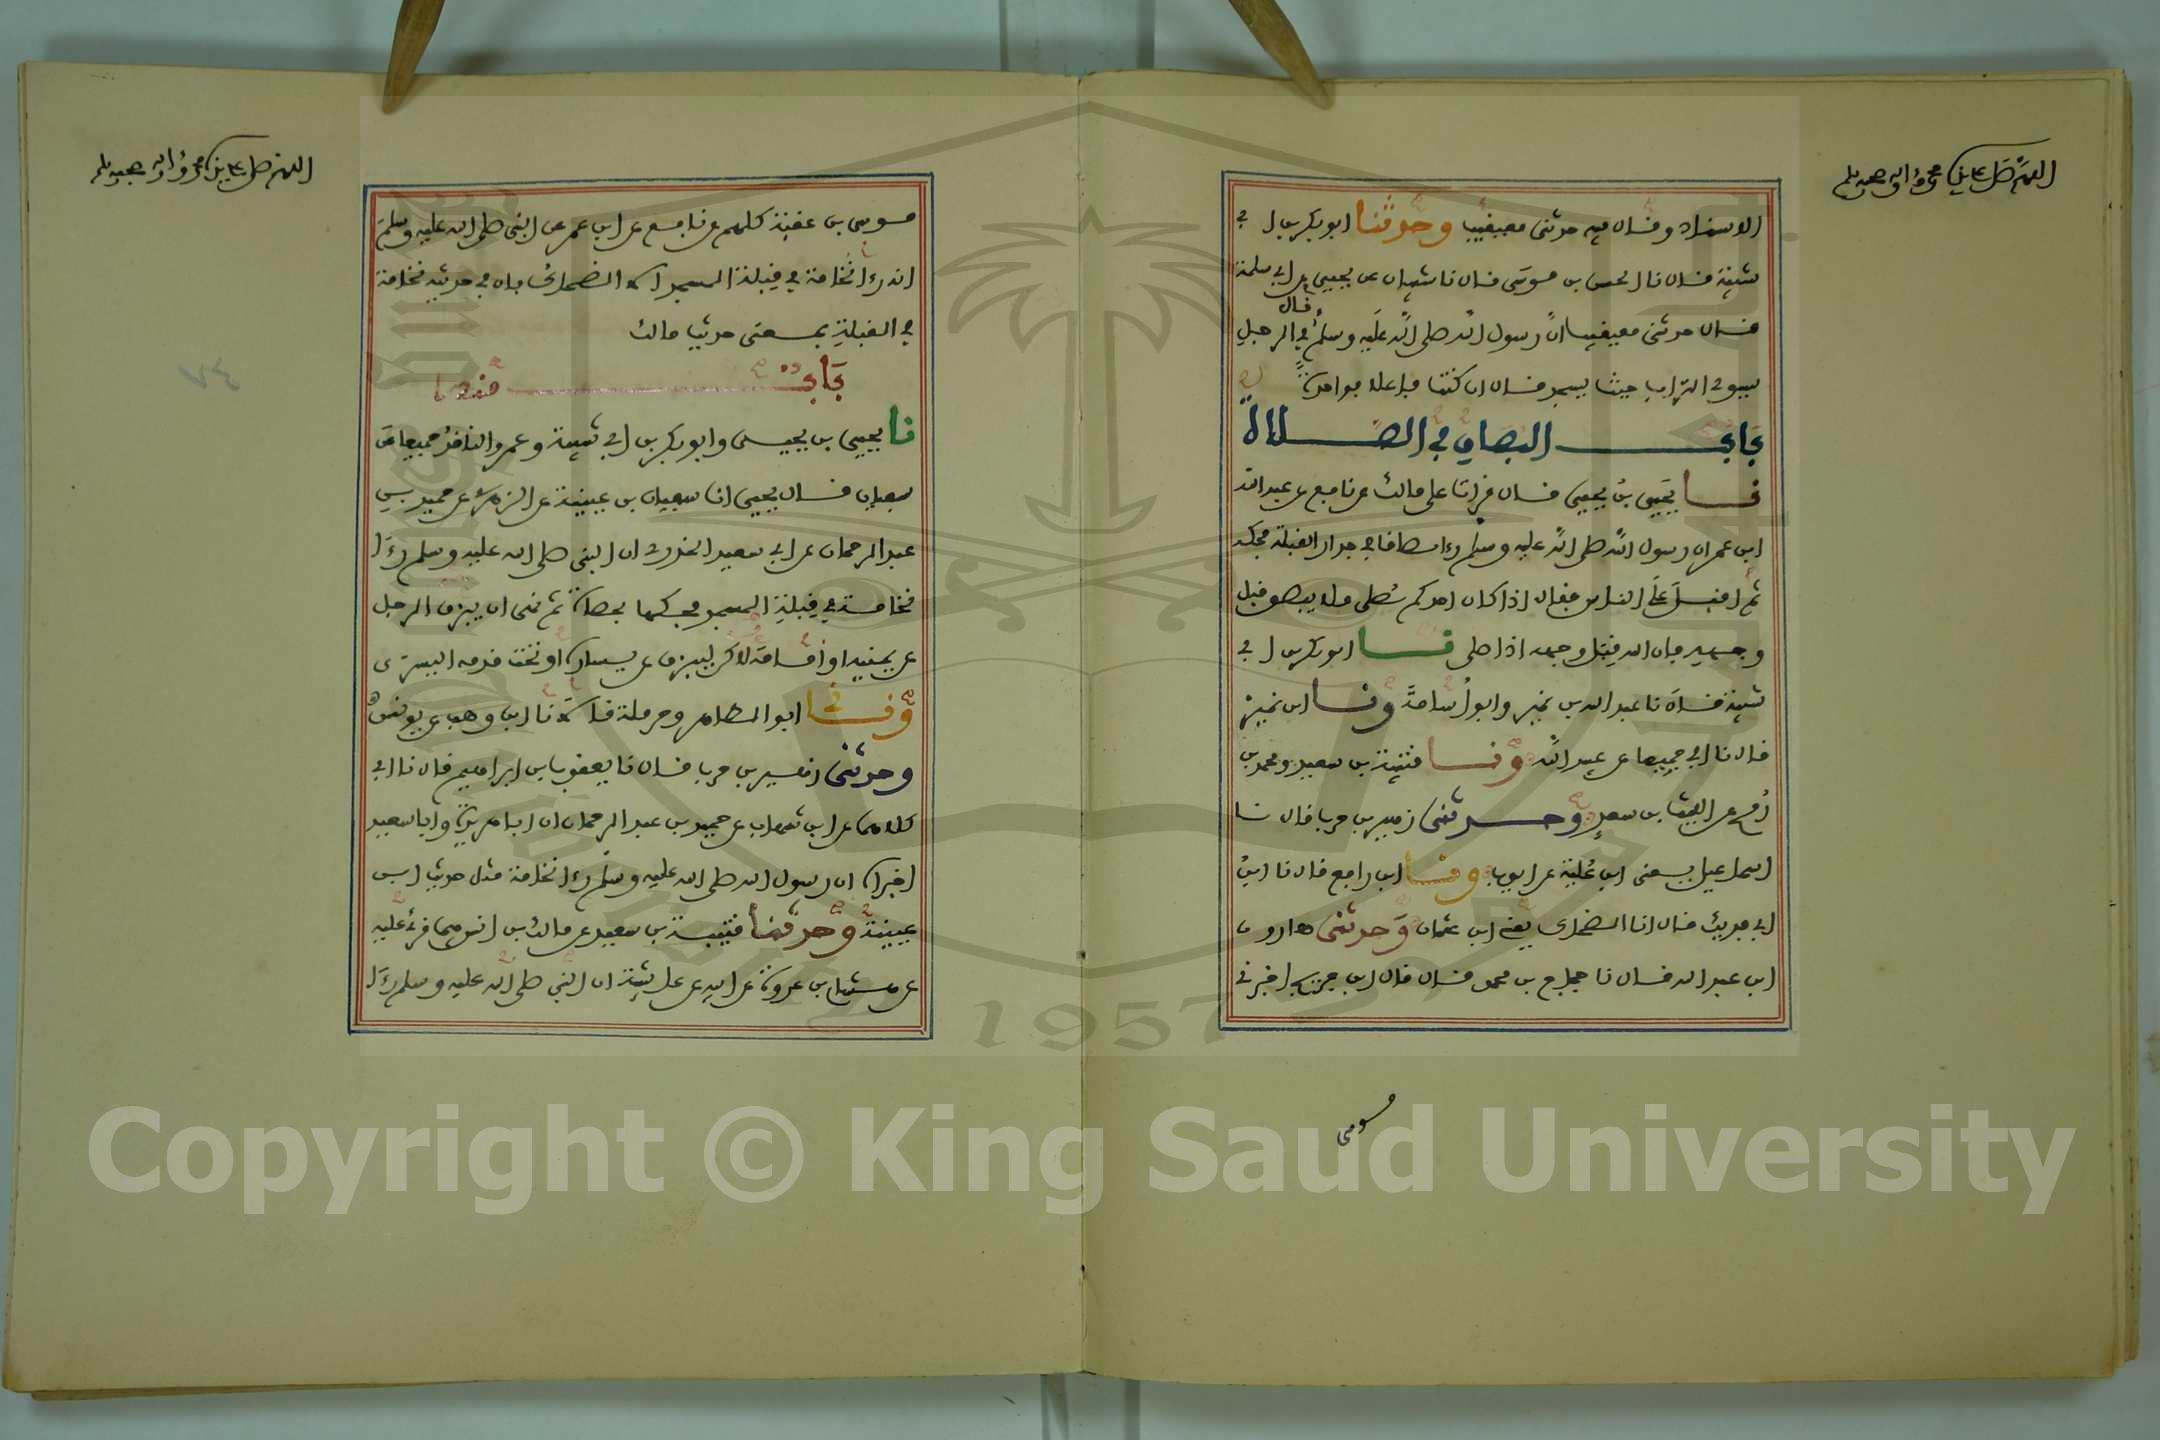 اللهم صل على سيدنا محمد وآله وصحبه وسلم
الاسناد وقال فيه حدثنى معيقيب وحدثنا ابوبكر بن ابي
شيبة قال نا الحسن بن موسى قال نا شيبان عن يحيى عن ابي سلمة
قال حدثنى معيقيب ان رسول الله صلى الله عليه وسلم قال في الرجل
يسوى التراب حيث يسجد قال ان كنت فاعلا فواحدة
باب البصاق في الصلاة
نا يحيى بن يحيى قال قرات على مالك عن نافع عن عبد الله
ابن عمر ان رسول الله صلى الله عليه وسلم رءا بصاقا في جدار القبلة فحكه
ثم اقبل على الناس فقال اذا كان احدكم يصلى فلا يبصق قبل
وجهه فان الله قبل وجهه اذا صلى نا ابوبكر بن ابي
شيبة قال نا عبد الله بن نمير وابو اسامة ونا ابن نمير
قال نا ابي جميعا عن عبيد الله ونا قتيبة بن سعيد ومحمد بن
رمح عن الليث بن سعد وحدثنى زهير بن حرب قال نا
اسماعيل يعنى ابن علية عن ايوب ونا ابن رافع قال نا ابن
ابي فديك قال انا الضحاك يعني ابن عثمان وحدثنى هارون
ابن عبد الله قال نا حجاج بن محمد قال قال ابن جريج اخبرني
موسى
اللهم صل على سيدنا محمد وآله وصحبه وسلم
موسى بن عقبة كلهم عن نافع عن ابن عمر عن النبي صلى الله عليه وسلم
انه رءا نخامة في قبلة المسجد الا الضحاك فان في حديثه نخامة
في القبلة بمعنى حديث مالك
٧٤
باب منه
نا يحيى بن يحيى وابوبكر بن ابي شيبة وعمرو الناقد جميعا عن
سفيان قال يحيى انا سفيان بن عيينة عن الزهري عن حميد بن
عبد الرحمان عن ابي سعيد الخدري ان النبي صلى الله عليه وسلم رءا
نخامة في قبلة المسجد فحكها بحصاة ثم نهى ان يبزق الرجل
عن يمينه او امامه لاكن ليبزق عن يساره او تحت قدمه اليسرى
ونا ابو الطاهر وحرملة قالا نا ابن وهب عن يونس
وحدثنى زهير بن حرب قال نا يعقوب بن ابراهيم قال نا ابي
كلاهما عن ابن شهاب عن حميد بن عبد الرحمان ان ابا هريرة وابا سعيد
اخبراه ان رسول الله صلى الله عليه وسلم رءا نخامة مثل حديث ابن
عيينة وحدثنا قتيبة بن سعيد عن مالك بن انس فيما قرئ عليه
عن هشام بن عروة عن ابيه عن عائشة ان النبي صلى الله عليه وسلم رءا
Copyright © King Saud University
1957